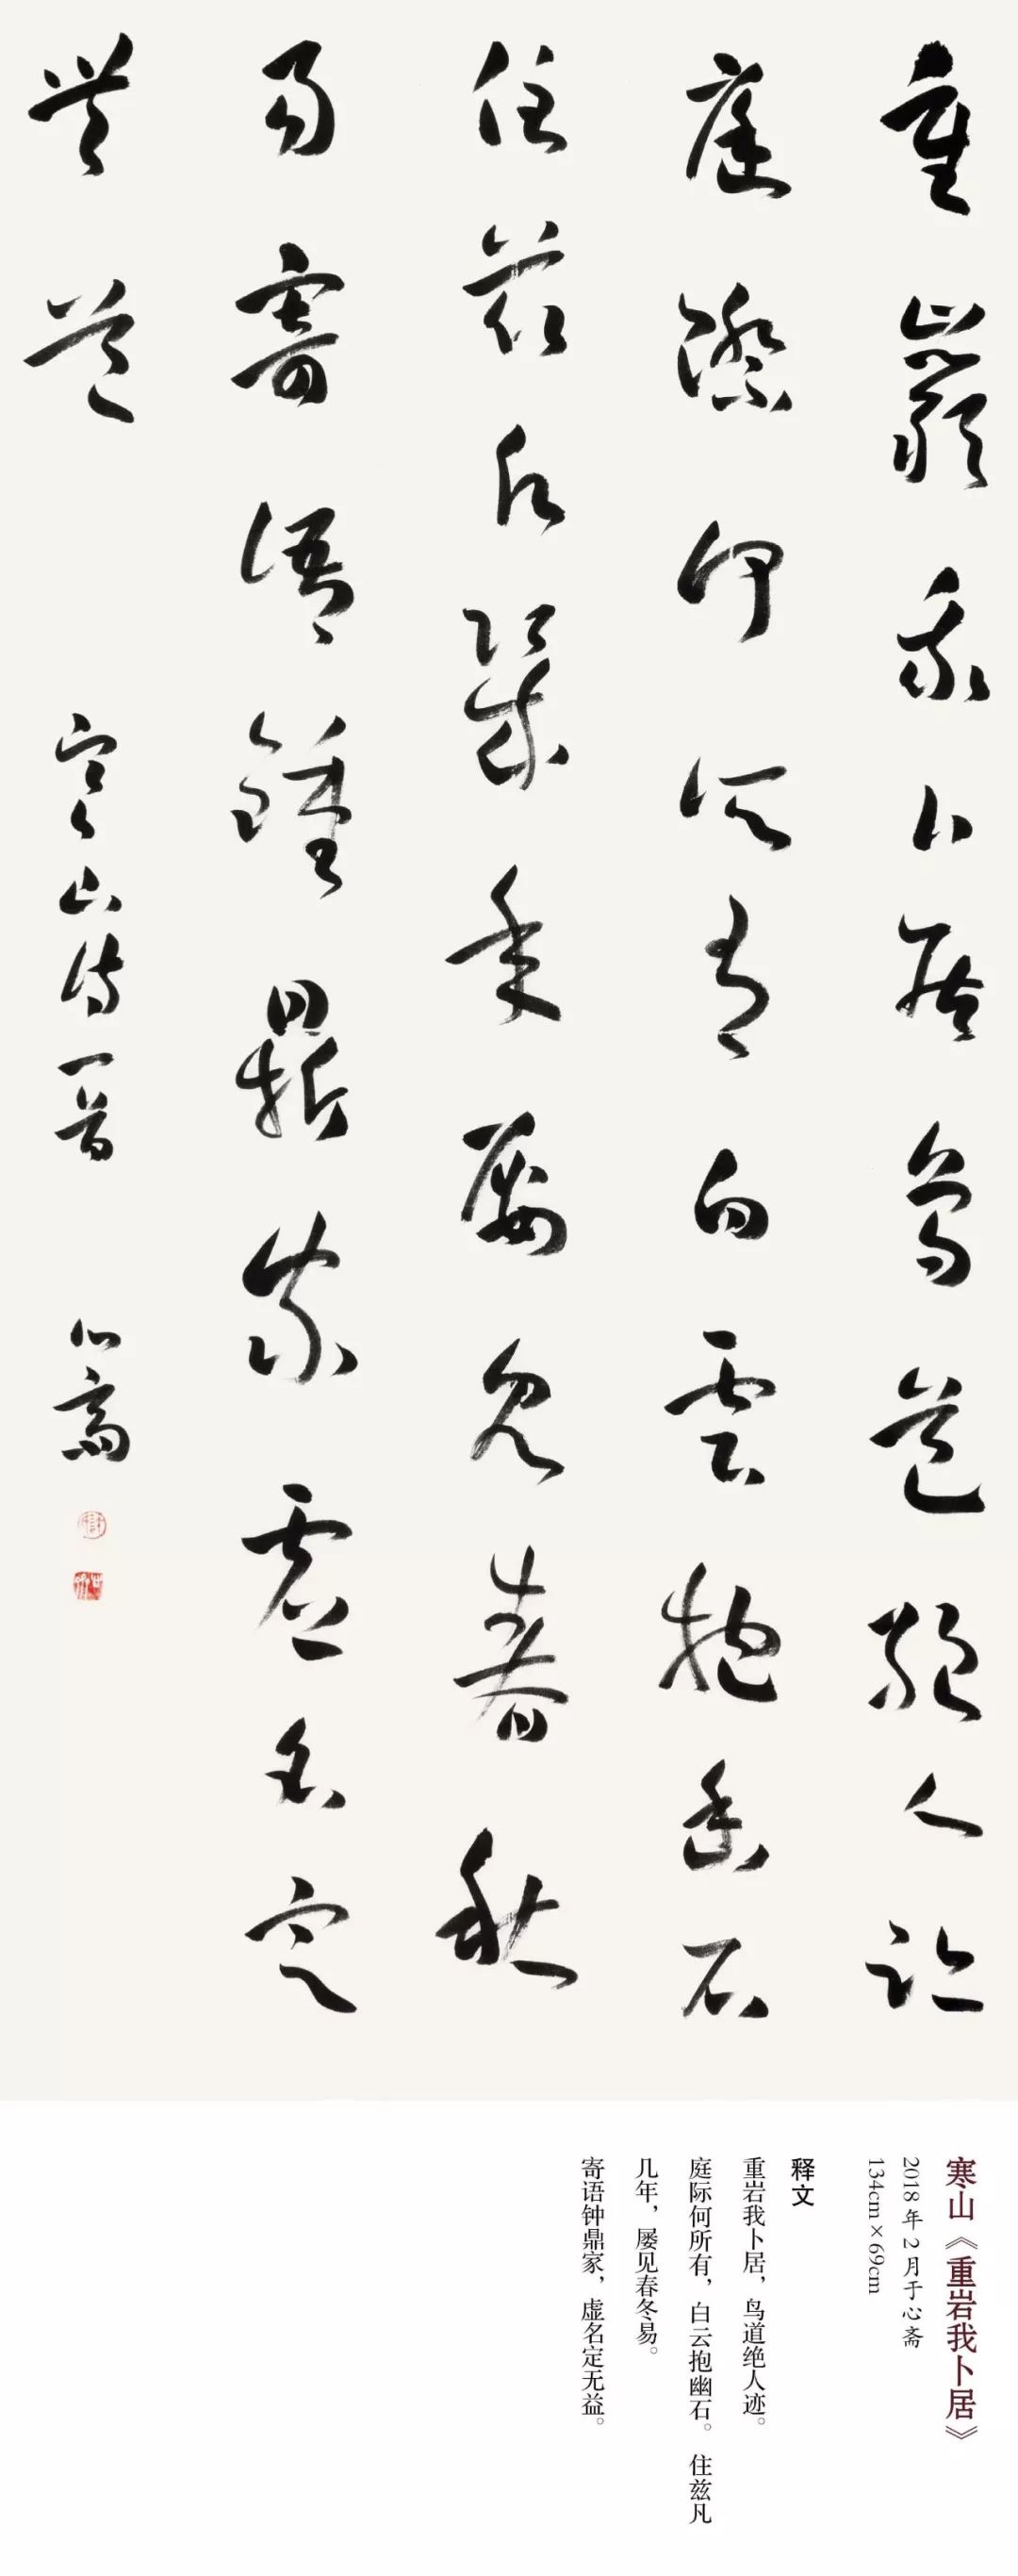 重巖我卜居鳥道絕人跡
庭際何所有白雲抱幽石
住茲凡幾年屢見春秋
易寄語鍾鼎家虛名定
無益
寒山詩一首 心齋
寒山《重岩我卜居》
2018年2月于心斋
134cm×69cm
释文
重岩我卜居，鸟道绝人迹。
庭际何所有，白云抱幽石。住兹凡
几年，屡见春冬易。
寄语钟鼎家，虚名定无益。